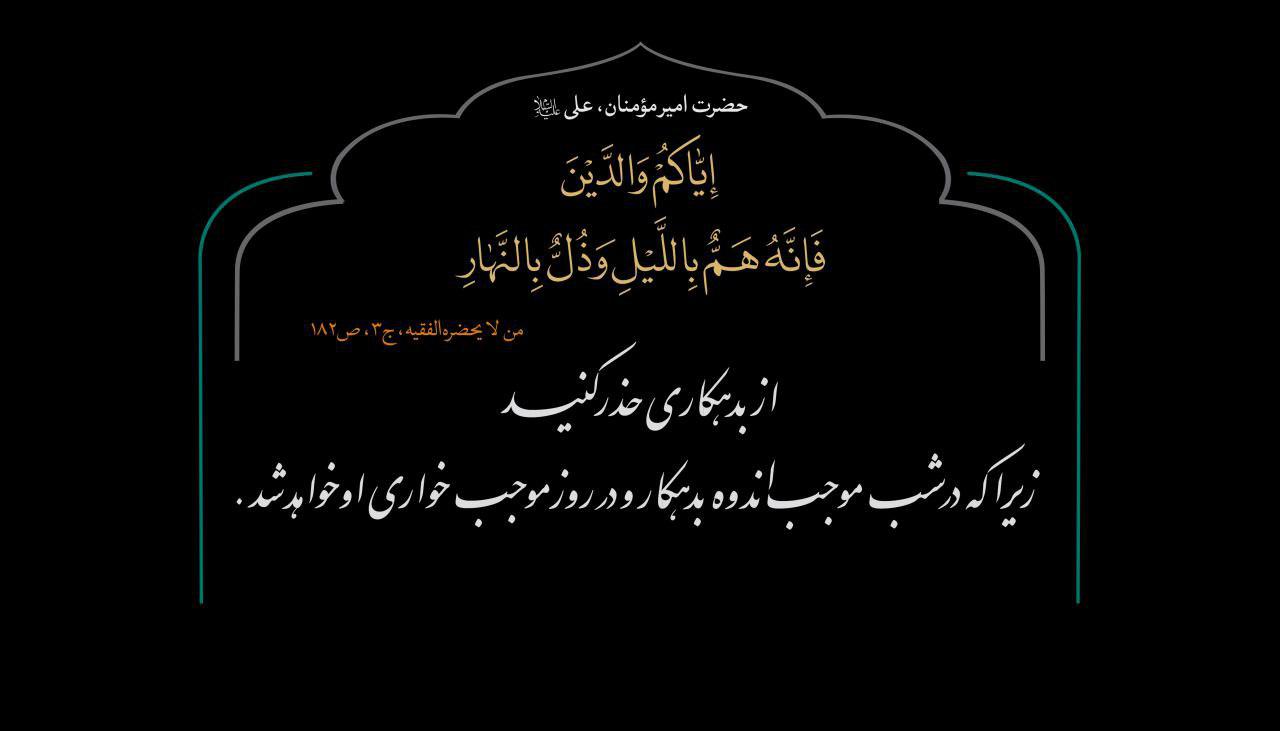 حضرت امیرمؤمنان، علی علیه‌السلام
إِیّاکُمْ وَالدَّیْنَ
فَإِنَّهُ هَمٌّ بِاللَّیْلِ وَذُلٌّ بِالنَّهارِ
من لا یحضره‌الفقیه، ج۳، ص۱۸۲
از بدهکاری حذر کنید
زیرا که در شب موجب اندوه بدهکار و در روز موجب خواری او خواهد شد.